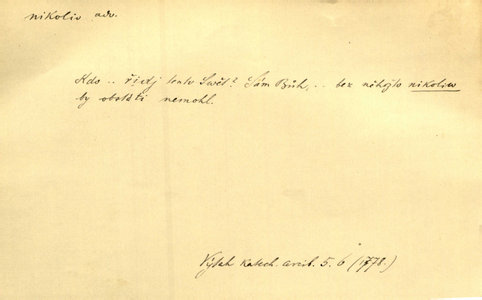 nikoliv adv.
Kdo .. řídj tento Swět? Sám Bůh, .. bez něhožto nikoliw
by obstáti nemohl.
Výtah katech. arcib. 5. 6 (1778.)